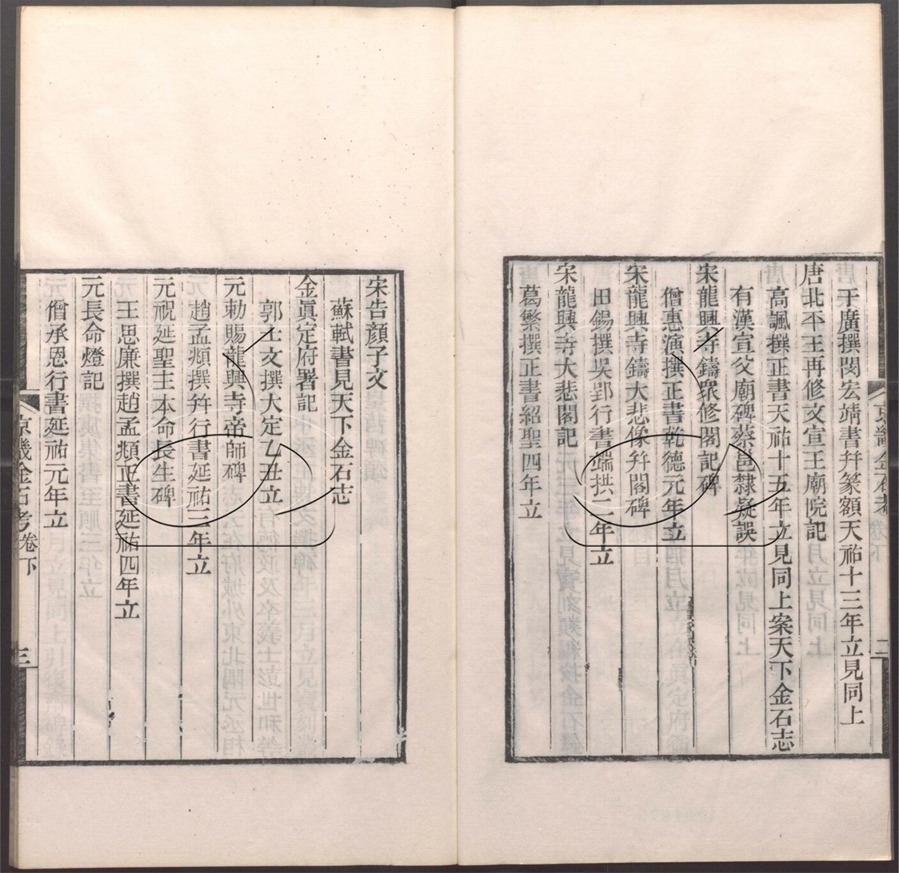 于廣撰閻宏靖書幷篆額天祐十三年立見同上
唐北平王再修文宣王廟院記
高諷撰正書天祐十五年立見同上案天下金石志
有漢宣父廟碑蔡邕隸疑誤
宋龍興寺鑄衆修閣記碑
僧惠演撰正書乾德元年立
宋龍興寺鑄大悲像幷閣碑
田錫撰吳郢行書端拱二年立
宋龍興寺大悲閣記
葛繁撰正書紹聖四年立
宋告顏子文
蘇軾書見天下金石志
金眞定府署記
郭士文撰大定乙丑立
元勅賜龍興寺帝師碑
趙孟頫撰幷行書延祐三年立
元祝延聖主本命長生碑
王思廉撰趙孟頫正書延祐四年立
元長命燈記
僧承恩行書延祐元年立
京畿金石考卷下
三